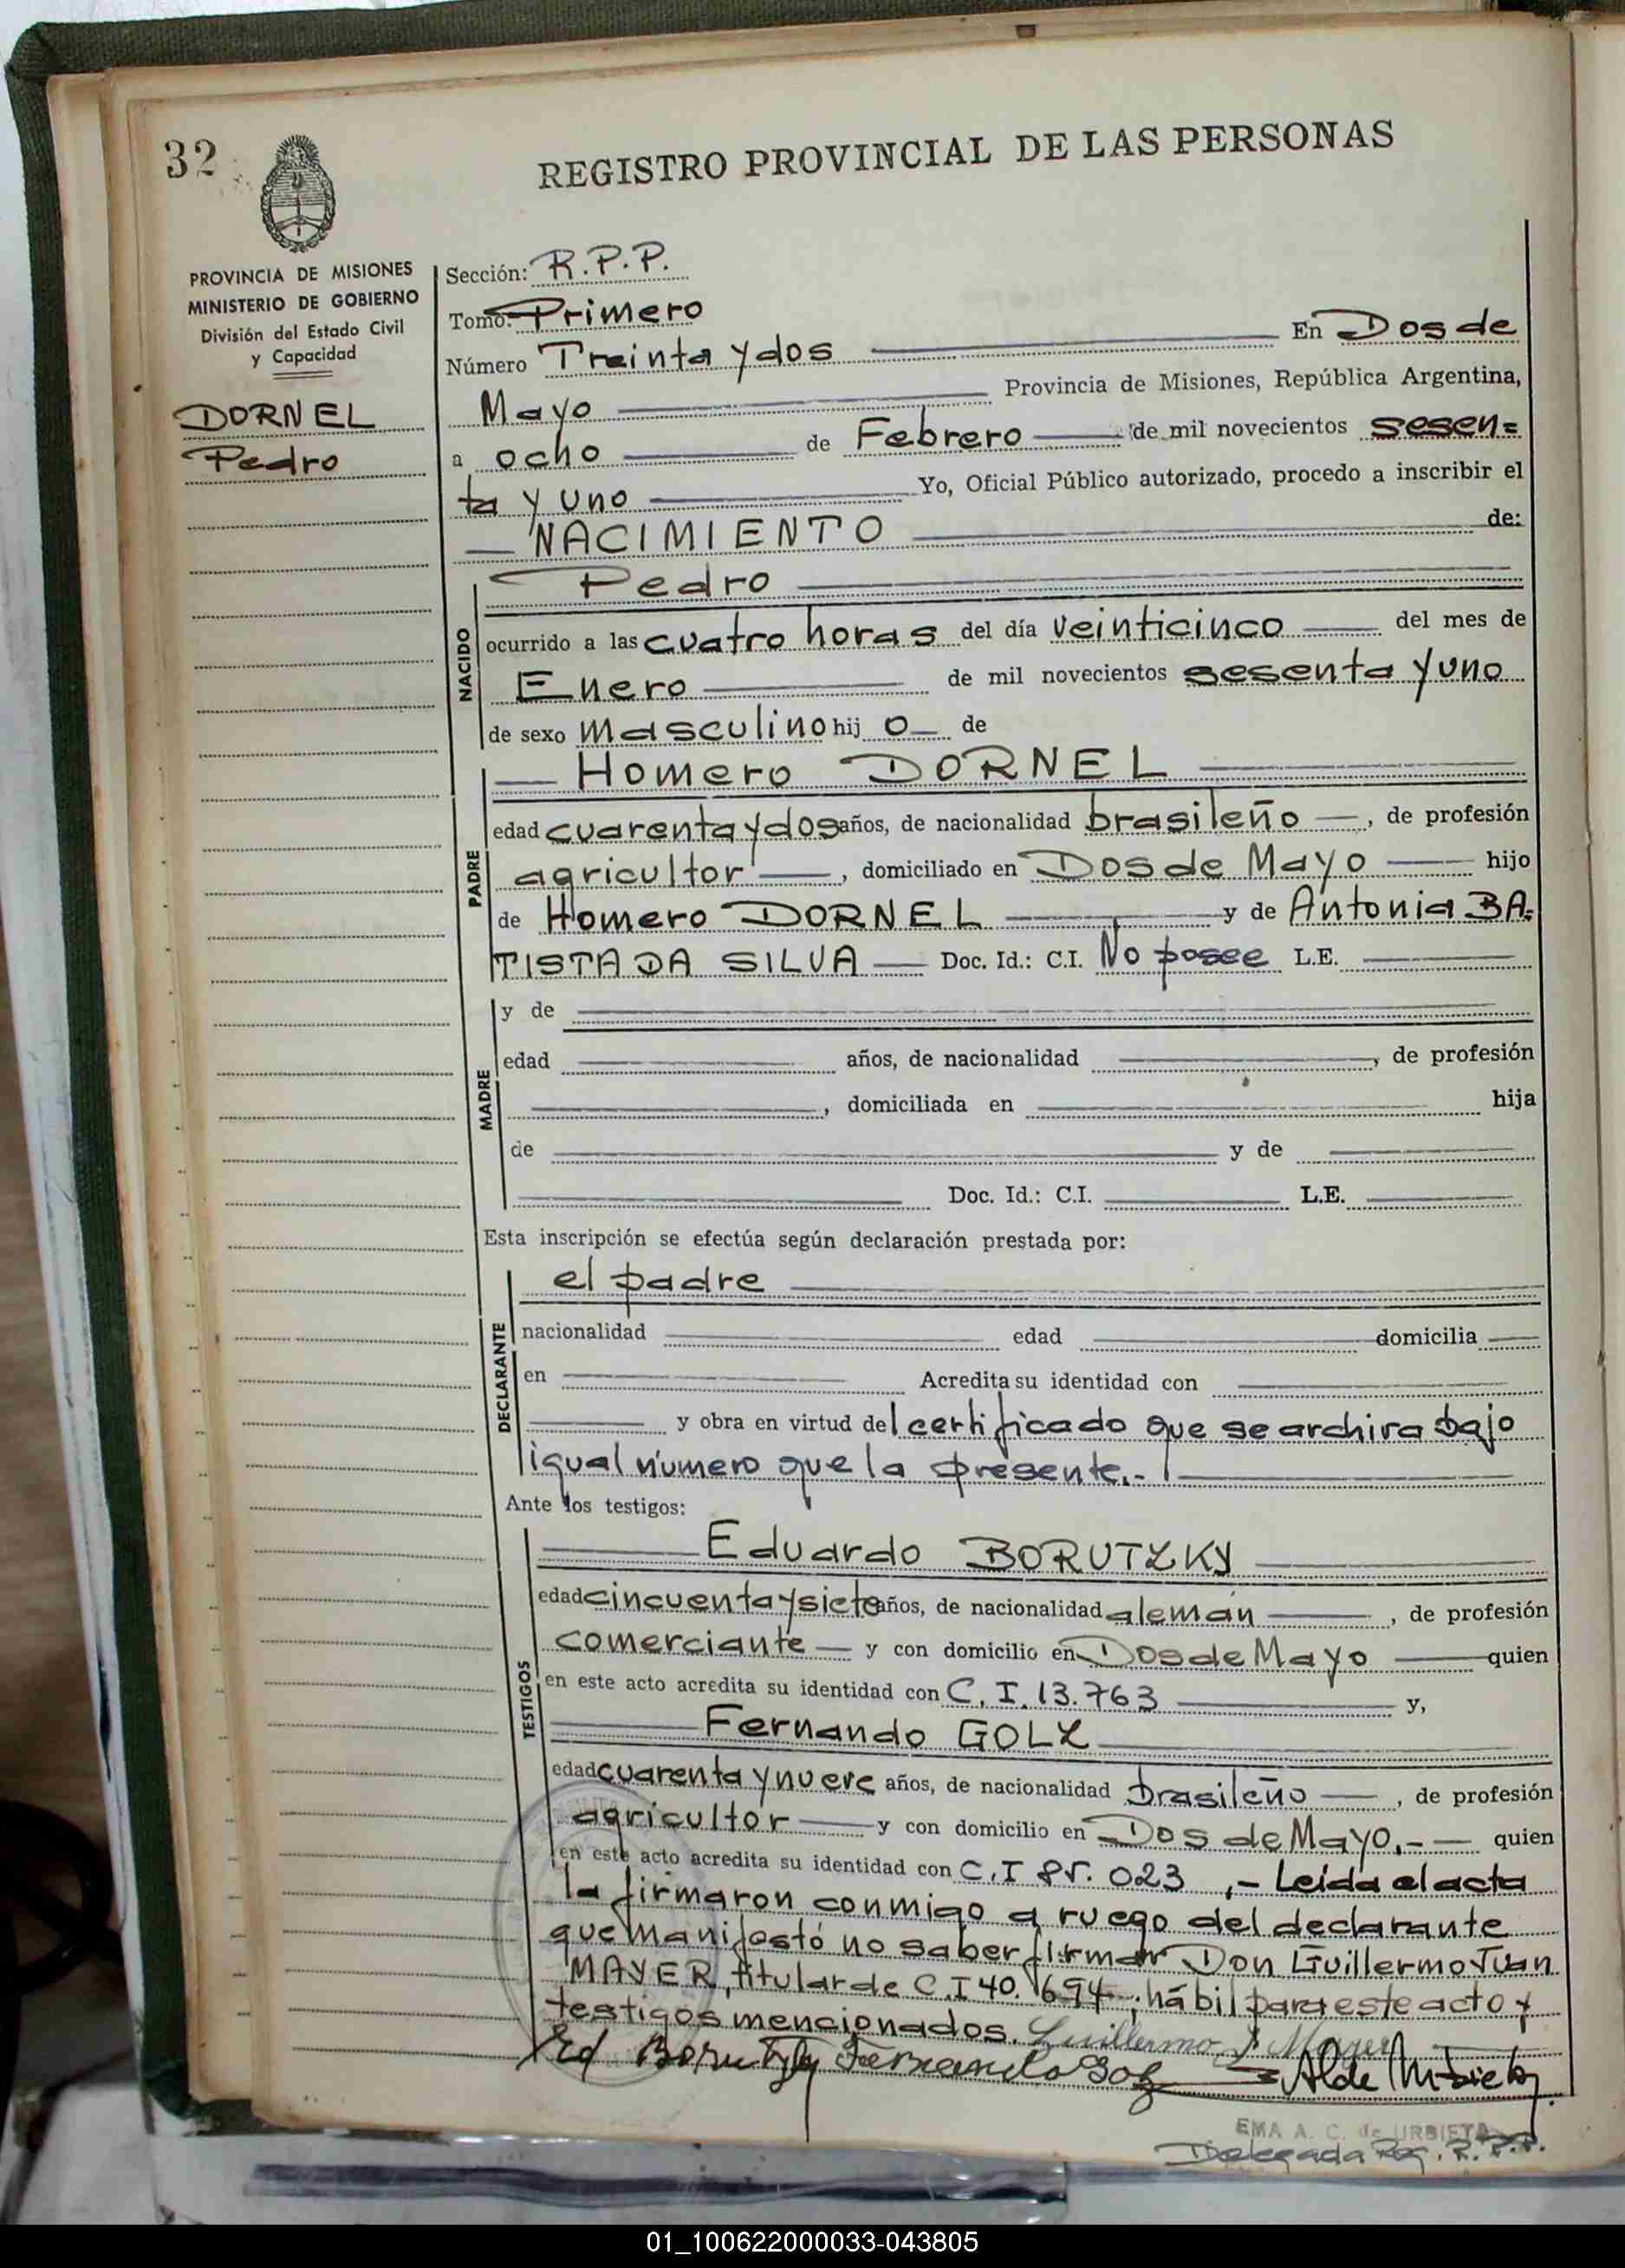 32
REGISTRO PROVINCIAL DE LAS PERSONAS
PROVINCIA DE MISIONES
MINISTERIO DE GOBIERNO
División del Estado Civil
y Capacidad
DORNEL
Pedro
Sección: R.P.P.
Tomo: Primero
Número Treinta y dos En Dos de
Mayo Provincia de Misiones, República Argentina,
a ocho de Febrero de mil novecientos sesen=
ta y uno Yo, Oficial Público autorizado, procedo a inscribir el
NACIMIENTO de:
NACIDO
Pedro
ocurrido a las cuatro horas del día veinticinco del mes de
Enero de mil novecientos sesenta y uno
de sexo masculino hij o de
PADRE
Homero DORNEL
edad cuarenta y dos años, de nacionalidad brasileño, de profesión
agricultor, domiciliado en Dos de Mayo hijo
de Homero DORNEL y de Antonia BA=
TISTA DA SILVA Doc. Id.: C.I. No posee L.E.
MADRE
y de
edad años, de nacionalidad , de profesión
, domiciliada en hija
de y de
Doc. Id.: C.I. L.E.
Esta inscripción se efectúa según declaración prestada por:
DECLARANTE
el padre
nacionalidad edad domicilia
en Acredita su identidad con
y obra en virtud del certificado que se archiva bajo
igual número que la presente.-
Ante los testigos:
TESTIGOS
Eduardo BORUTZKY
edad cincuenta y siete años, de nacionalidad alemán, de profesión
comerciante y con domicilio en Dos de Mayo quien
en este acto acredita su identidad con C.I. 13.763 y,
Fernando GOLZ
edad cuarenta y nueve años, de nacionalidad brasileño, de profesión
agricultor y con domicilio en Dos de Mayo.- quien
en este acto acredita su identidad con C.I 85.023 ,- Leída el acta
la firmaron conmigo a ruego del declarante
que manifestó no saber firmar Don Guillermo Juan
MAYER, titular de C.I 40.694, hábil para este acto y
testigos mencionados. Guillermo J Mayer
Ed Borutzky Fernando Golz
EMA A. C. de URBIETA
Delegada Reg. R.P.P.
01_100622000033-043805